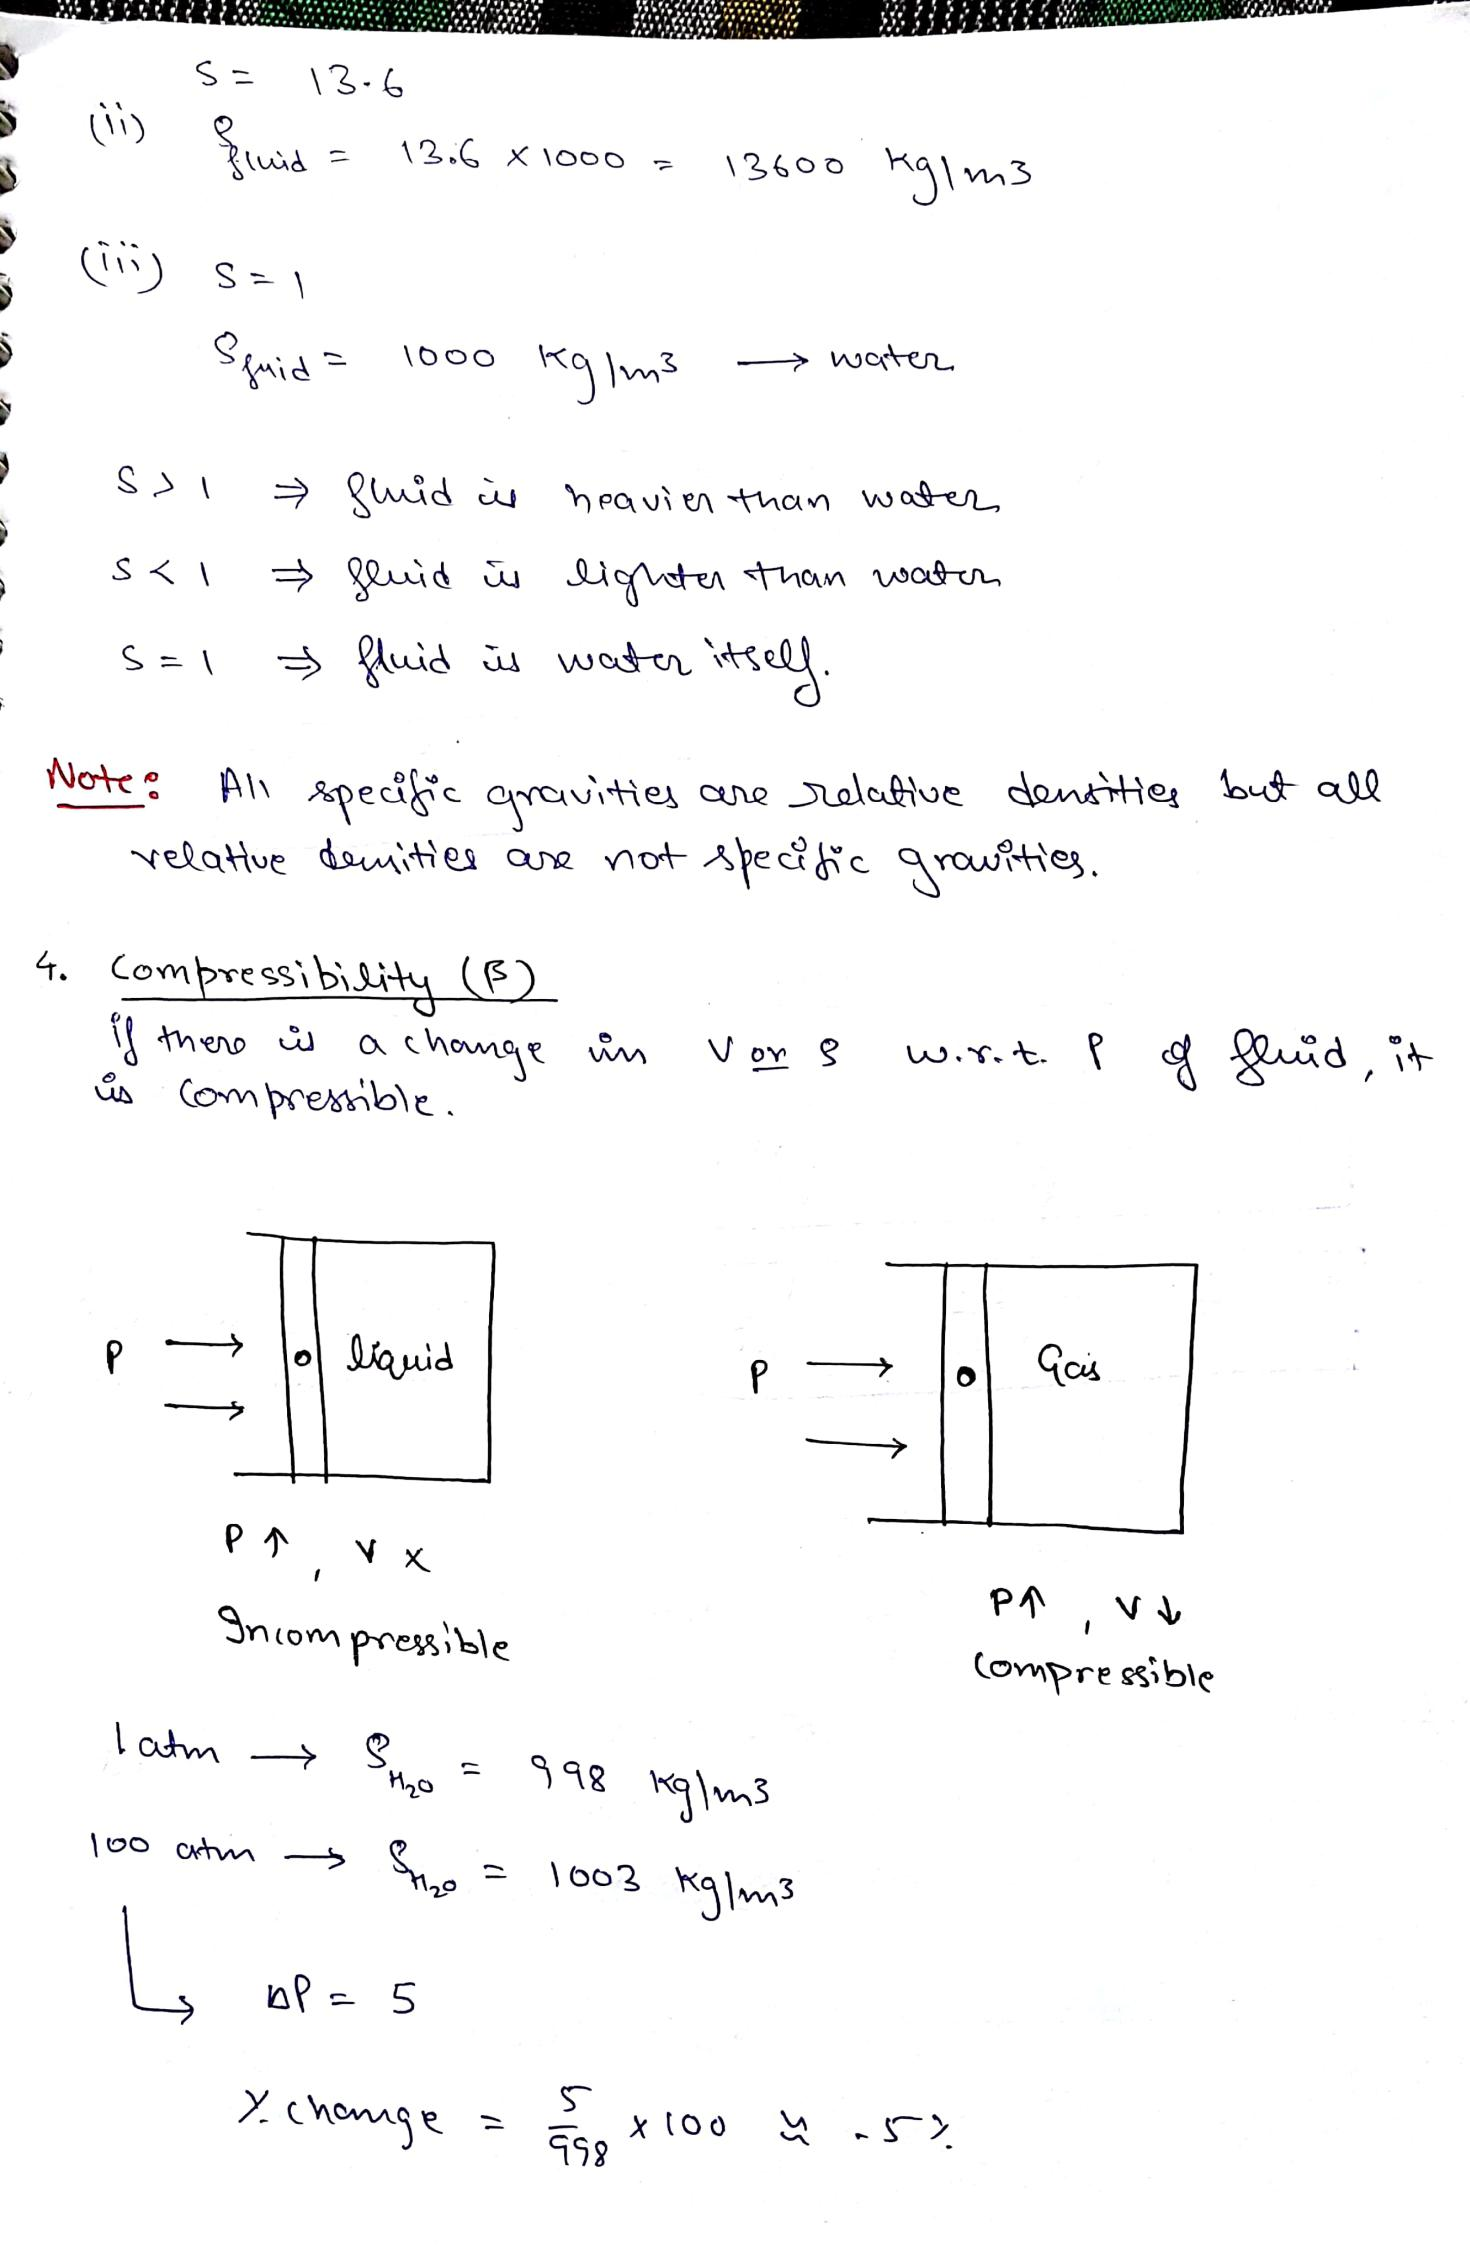 S = 13.6
(ii) ρfluid = 13.6 × 1000 = 13600 Kg/m3
(iii) S = 1
ρfuid = 1000 Kg/m3 → water
S > 1 ⇒ fluid is heavier than water
S < 1 ⇒ fluid is lighter than water
S = 1 ⇒ fluid is water itself.
Note: All specific gravities are relative densities but all
relative densities are not specific gravities.
4. Compressibility (β)
if there is a change in V or ρ w.r.t. P of fluid, it
is compressible.
P → liquid
P → Gas
P↑, V ×
Incompressible
P↑, V↓
Compressible
1 atm → ρH2O = 998 Kg/m3
100 atm → ρH2O = 1003 Kg/m3
↳ ΔP = 5
% change = 5/998 × 100 ≈ .5%